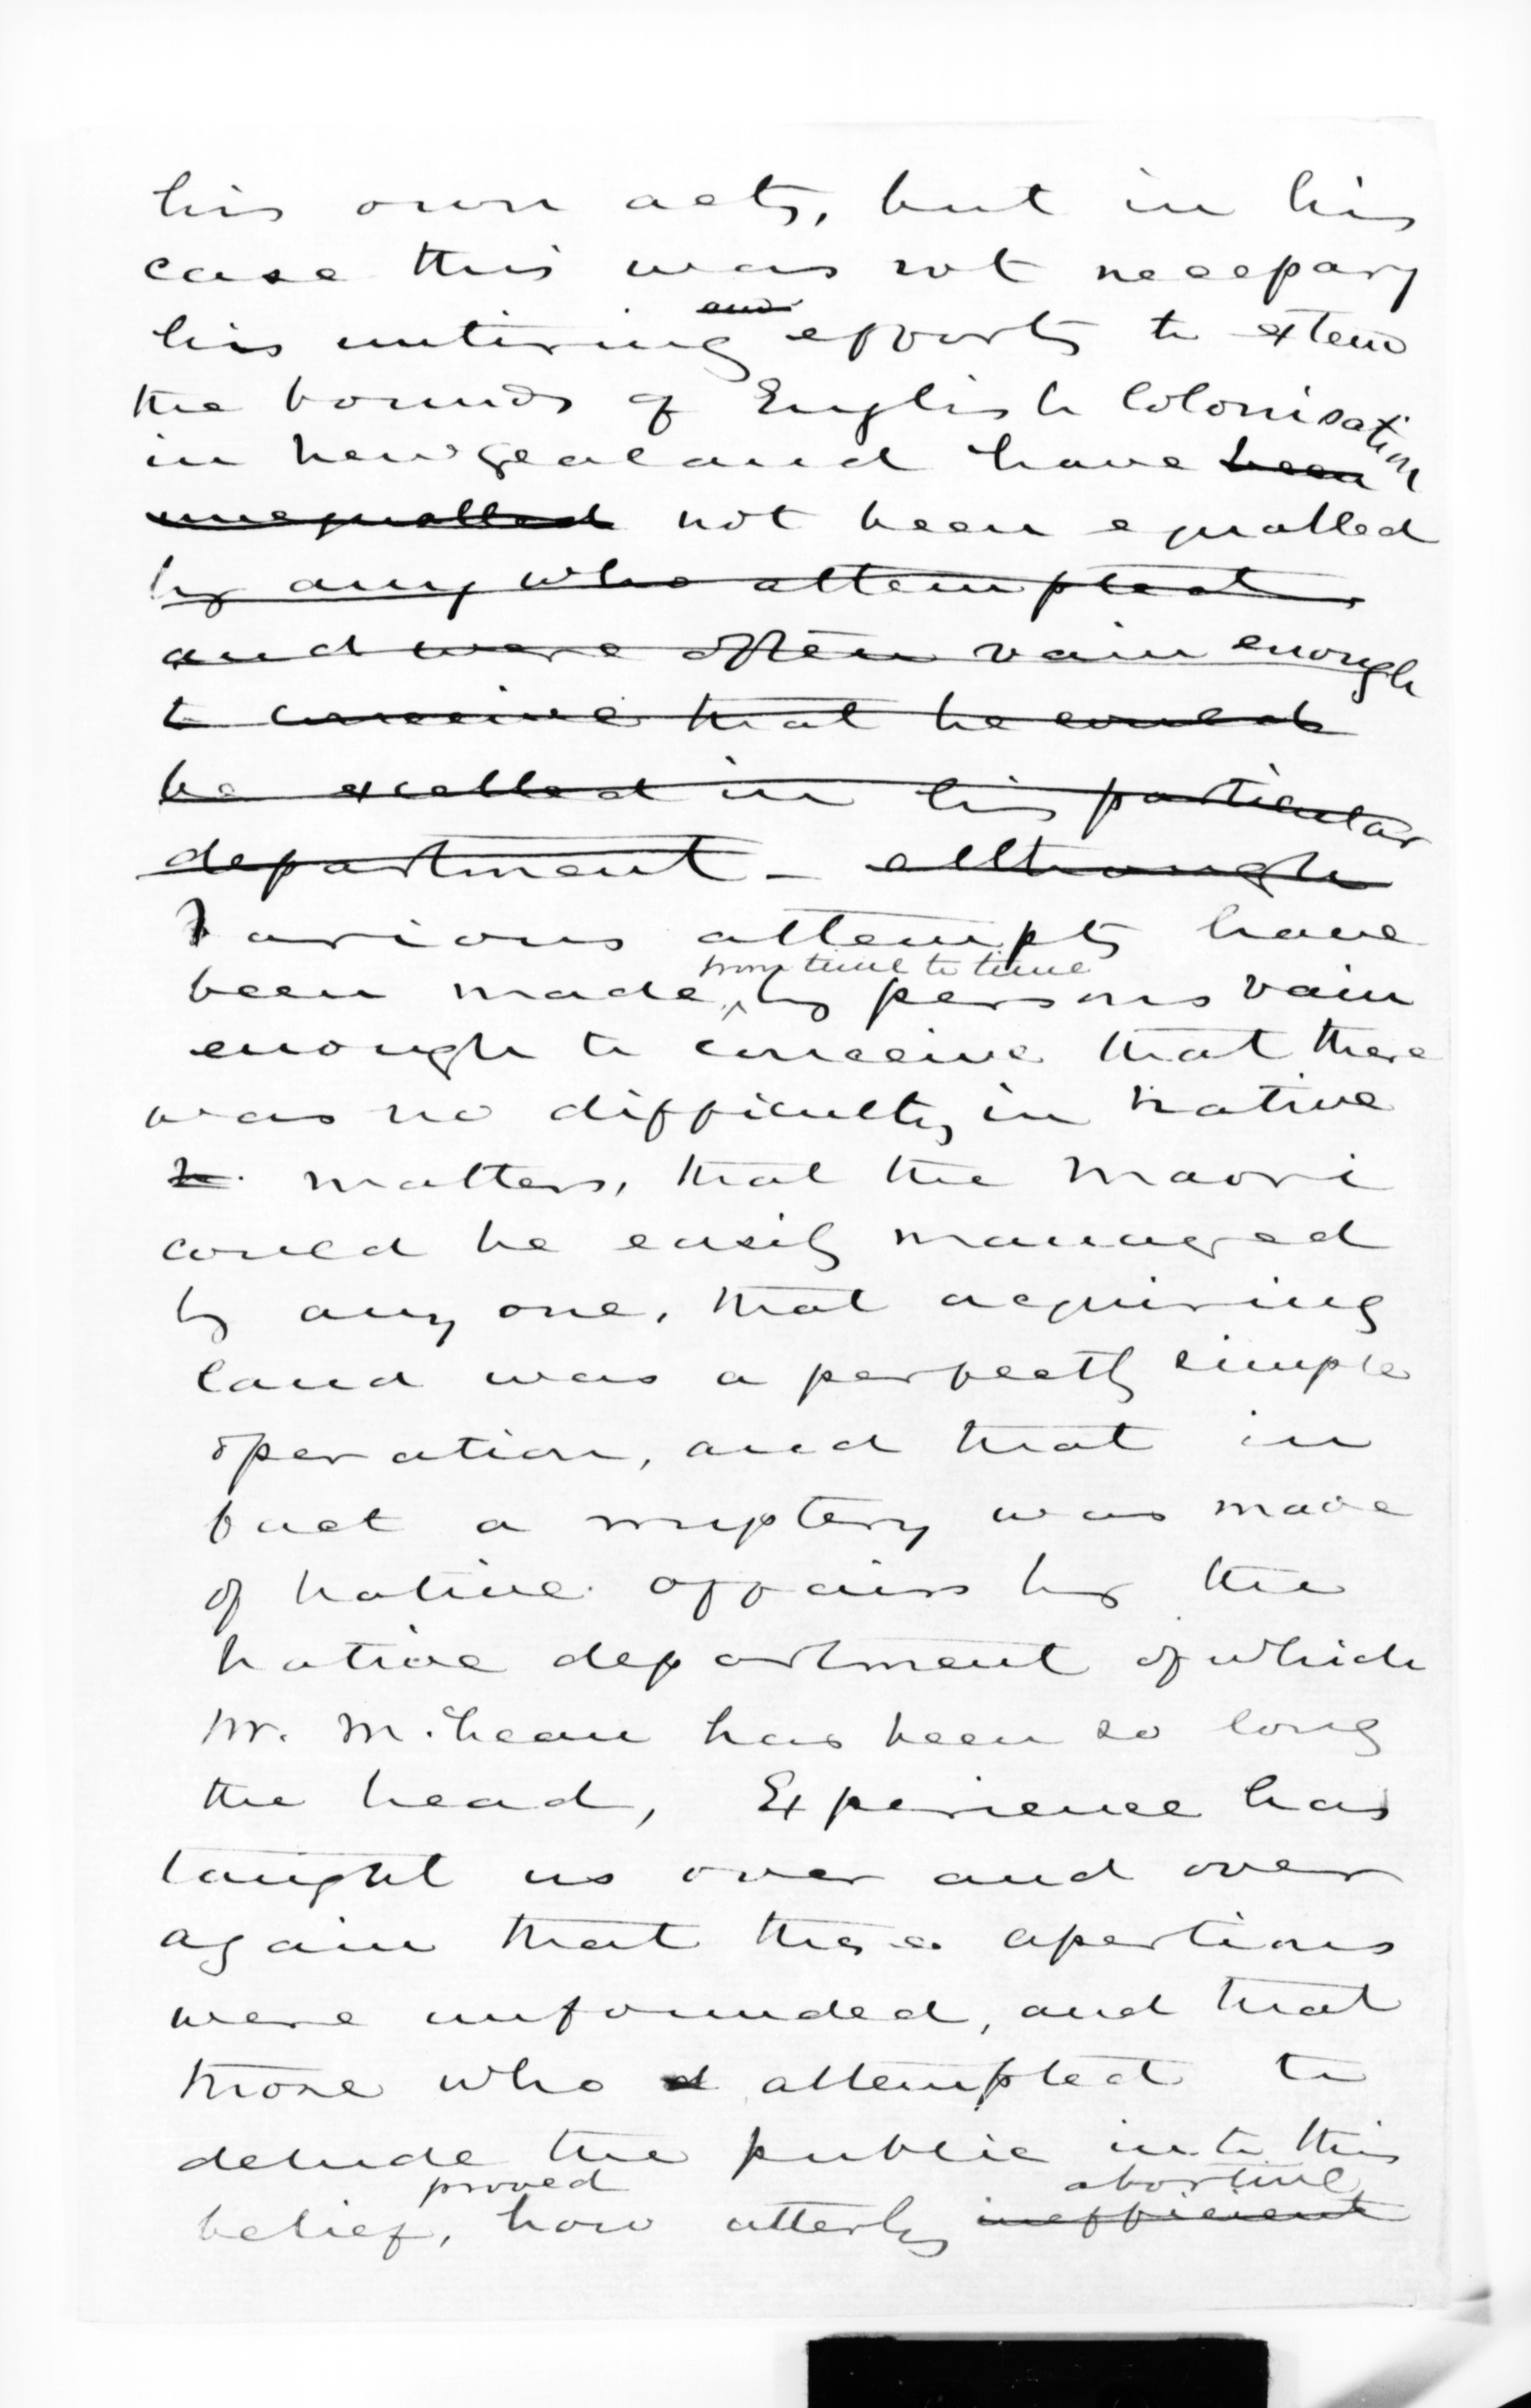 his own acts, but in his
case this was not necessary
and
his untiring efforts to extend
the bounds of English Colonisation
in New Zealand have been
unequalled not been equalled
by any who attempted
and were often vain enough
to conceive that he could
be excelled in his particular
department - although
Various attempts have
from time to time
been made, by persons vain
enough to conceive that there
was no difficulty in Native
matters, that the Maori
could be easily managed
by any one, that acquiring
land was a perfectly simple
operation, and that in
fact a mystery was made
of Native affairs by the
Native department of which
Mr. McLean has been so long
the head, Experience has
taught us over and over
again that these assertions
were unfounded, and that
those who attempted to
delude the public into this
proved abortive
belief, how utterly inefficient